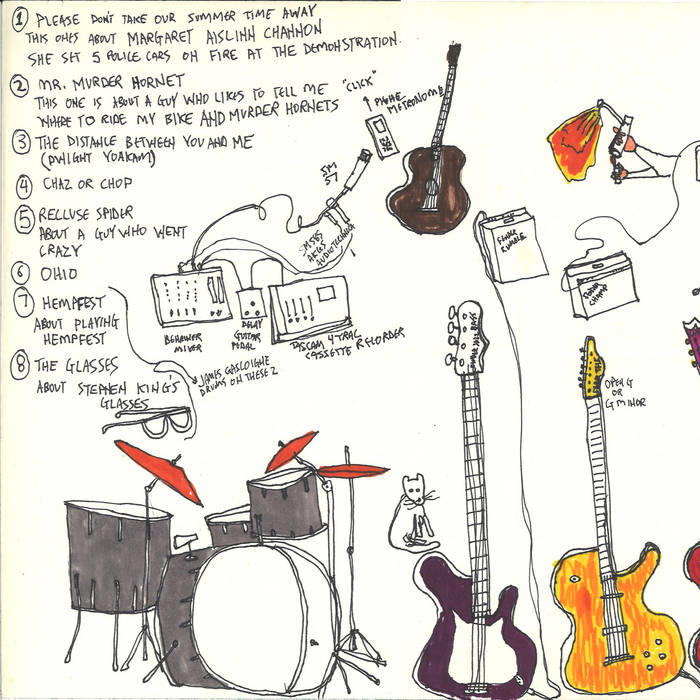 ① PLEASE DON'T TAKE OUR SUMMER TIME AWAY
THIS ONES ABOUT MARGARET AISLINN CHANNON
SHE SET 5 POLICE CARS ON FIRE AT THE DEMONSTRATION.
② MR. MURDER HORNET
THIS ONE IS ABOUT A GUY WHO LIKES TO TELL ME
WHERE TO RIDE MY BIKE AND MURDER HORNETS
③ THE DISTANCE BETWEEN YOU AND ME
(DWIGHT YOAKAM)
④ CHAZ OR CHOP
⑤ RECLUSE SPIDER
ABOUT A GUY WHO WENT
CRAZY
⑥ OHIO
⑦ HEMPFEST
ABOUT PLAYING
HEMPFEST
⑧ THE GLASSES
ABOUT STEPHEN KING'S
GLASSES
JAMES GASCOIGNE
DRUMS ON THESE 2
"CLICK"
PHONE
METRONOME
SM
57
SM58S
AKGS
AUDIOTECHNICA
BEHRINGER
MIXER
DELAY
GUITAR
PEDAL
TASCAM 4 TRAC
CASSETTE RECORDER
FENDER
RUMBLE
FENDER
CHAMP
OPEN G
OR
G MINOR